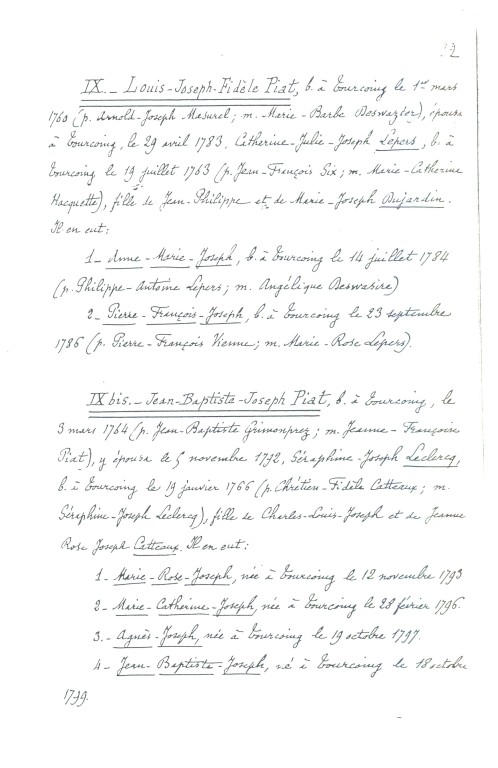 12
IX._ Louis-Joseph-Fidèle Piat, b. à Tourcoing le 1er mars
1760 (p. Arnold-Joseph Masurel; m. Marie-Barbe Deswazier), épousa
à Tourcoing, le 29 avril 1783, Catherine-Julie-Joseph Lepers, b. à
Tourcoing le 19 juillet 1763 (p. Jean-François Six; m. Marie-Catherine
Hacquette), fille de Jean-Philippe et de Marie-Joseph Dujardin.
Il en eut:
1_ Anne-Marie-Joseph, b. à Tourcoing le 14 juillet 1784
(p. Philippe-Antoine Lepers; m. Angélique Deswasire)
2_ Pierre-François-Joseph, b. à Tourcoing le 23 septembre
1786 (p. Pierre-François Vienne; m. Marie-Rose Lepers).
IX bis._ Jean-Baptiste-Joseph Piat, b. à Tourcoing, le
3 mars 1764 (p. Jean-Baptiste Grimonprez; m. Jeanne-Françoise
Piat), y épousa le 5 novembre 1792, Séraphine-Joseph Leclercq,
b. à Tourcoing le 19 janvier 1766 (p. Chrétien-Fidèle Catteaux; m.
Séraphine-Joseph Leclercq), fille de Charles-Louis-Joseph et de Jeanne
Rose Joseph Catteaux. Il en eut:
1_ Marie-Rose-Joseph, née à Tourcoing le 12 novembre 1793
2_ Marie-Catherine-Joseph, née à Tourcoing le 28 février 1796.
3._ Agnès-Joseph, née à Tourcoing le 19 octobre 1797.
4_ Jean-Baptiste-Joseph, né à Tourcoing le 18 octobre
1799.